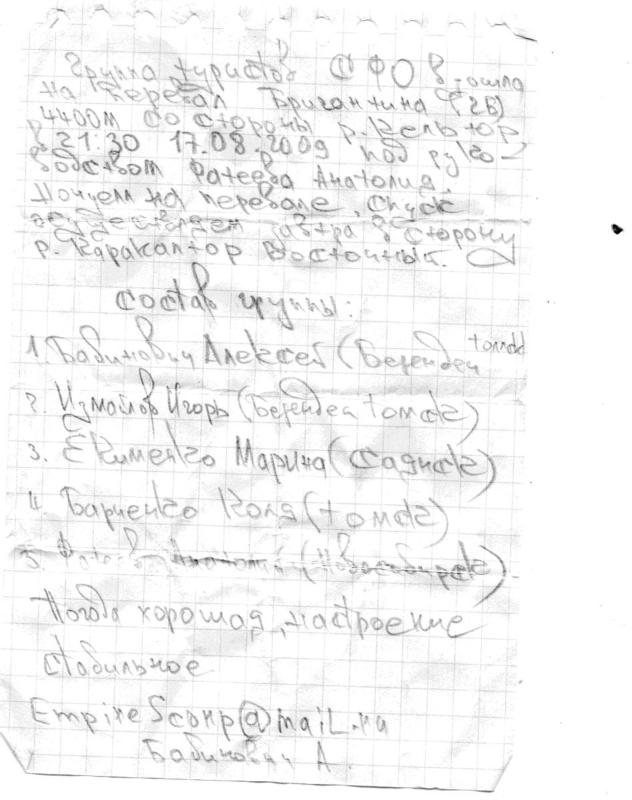 Группа туристов СФО взошла
на перевал Бригантина (2Б)
4400м со стороны р. Кельтор
в 21:30 17.08.2009 под руко-
водством Фатеева Анатолия.
Ночуем на перевале, спуск
осуществляем завтра в сторону
р. Каракалтор Восточный.
состав группы:
1. Бабинович Алексей (Берендеи томск)
2. Измайлов Игорь (Берендеи томск)
3. Екименко Марина (Саянск)
4. Барченко Коля (томск)
5. Фатеев Анатолий (Новосибирск)
Погода хорошая, настроение
стабильное
EmpireScorp@mail.ru
Бабинович А.